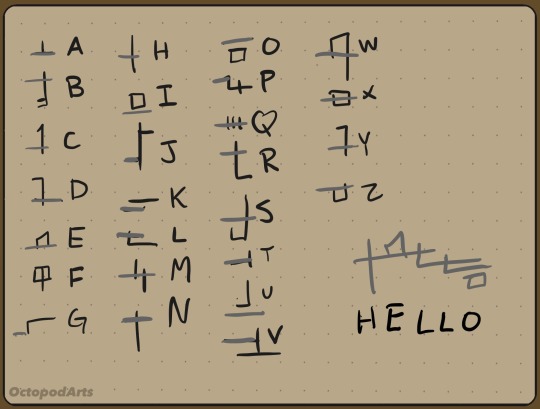 A
B
C
D
E
F
G
H
I
J
K
L
M
N
O
P
Q
R
S
T
U
V
W
X
Y
Z
HELLO
OctopodArts